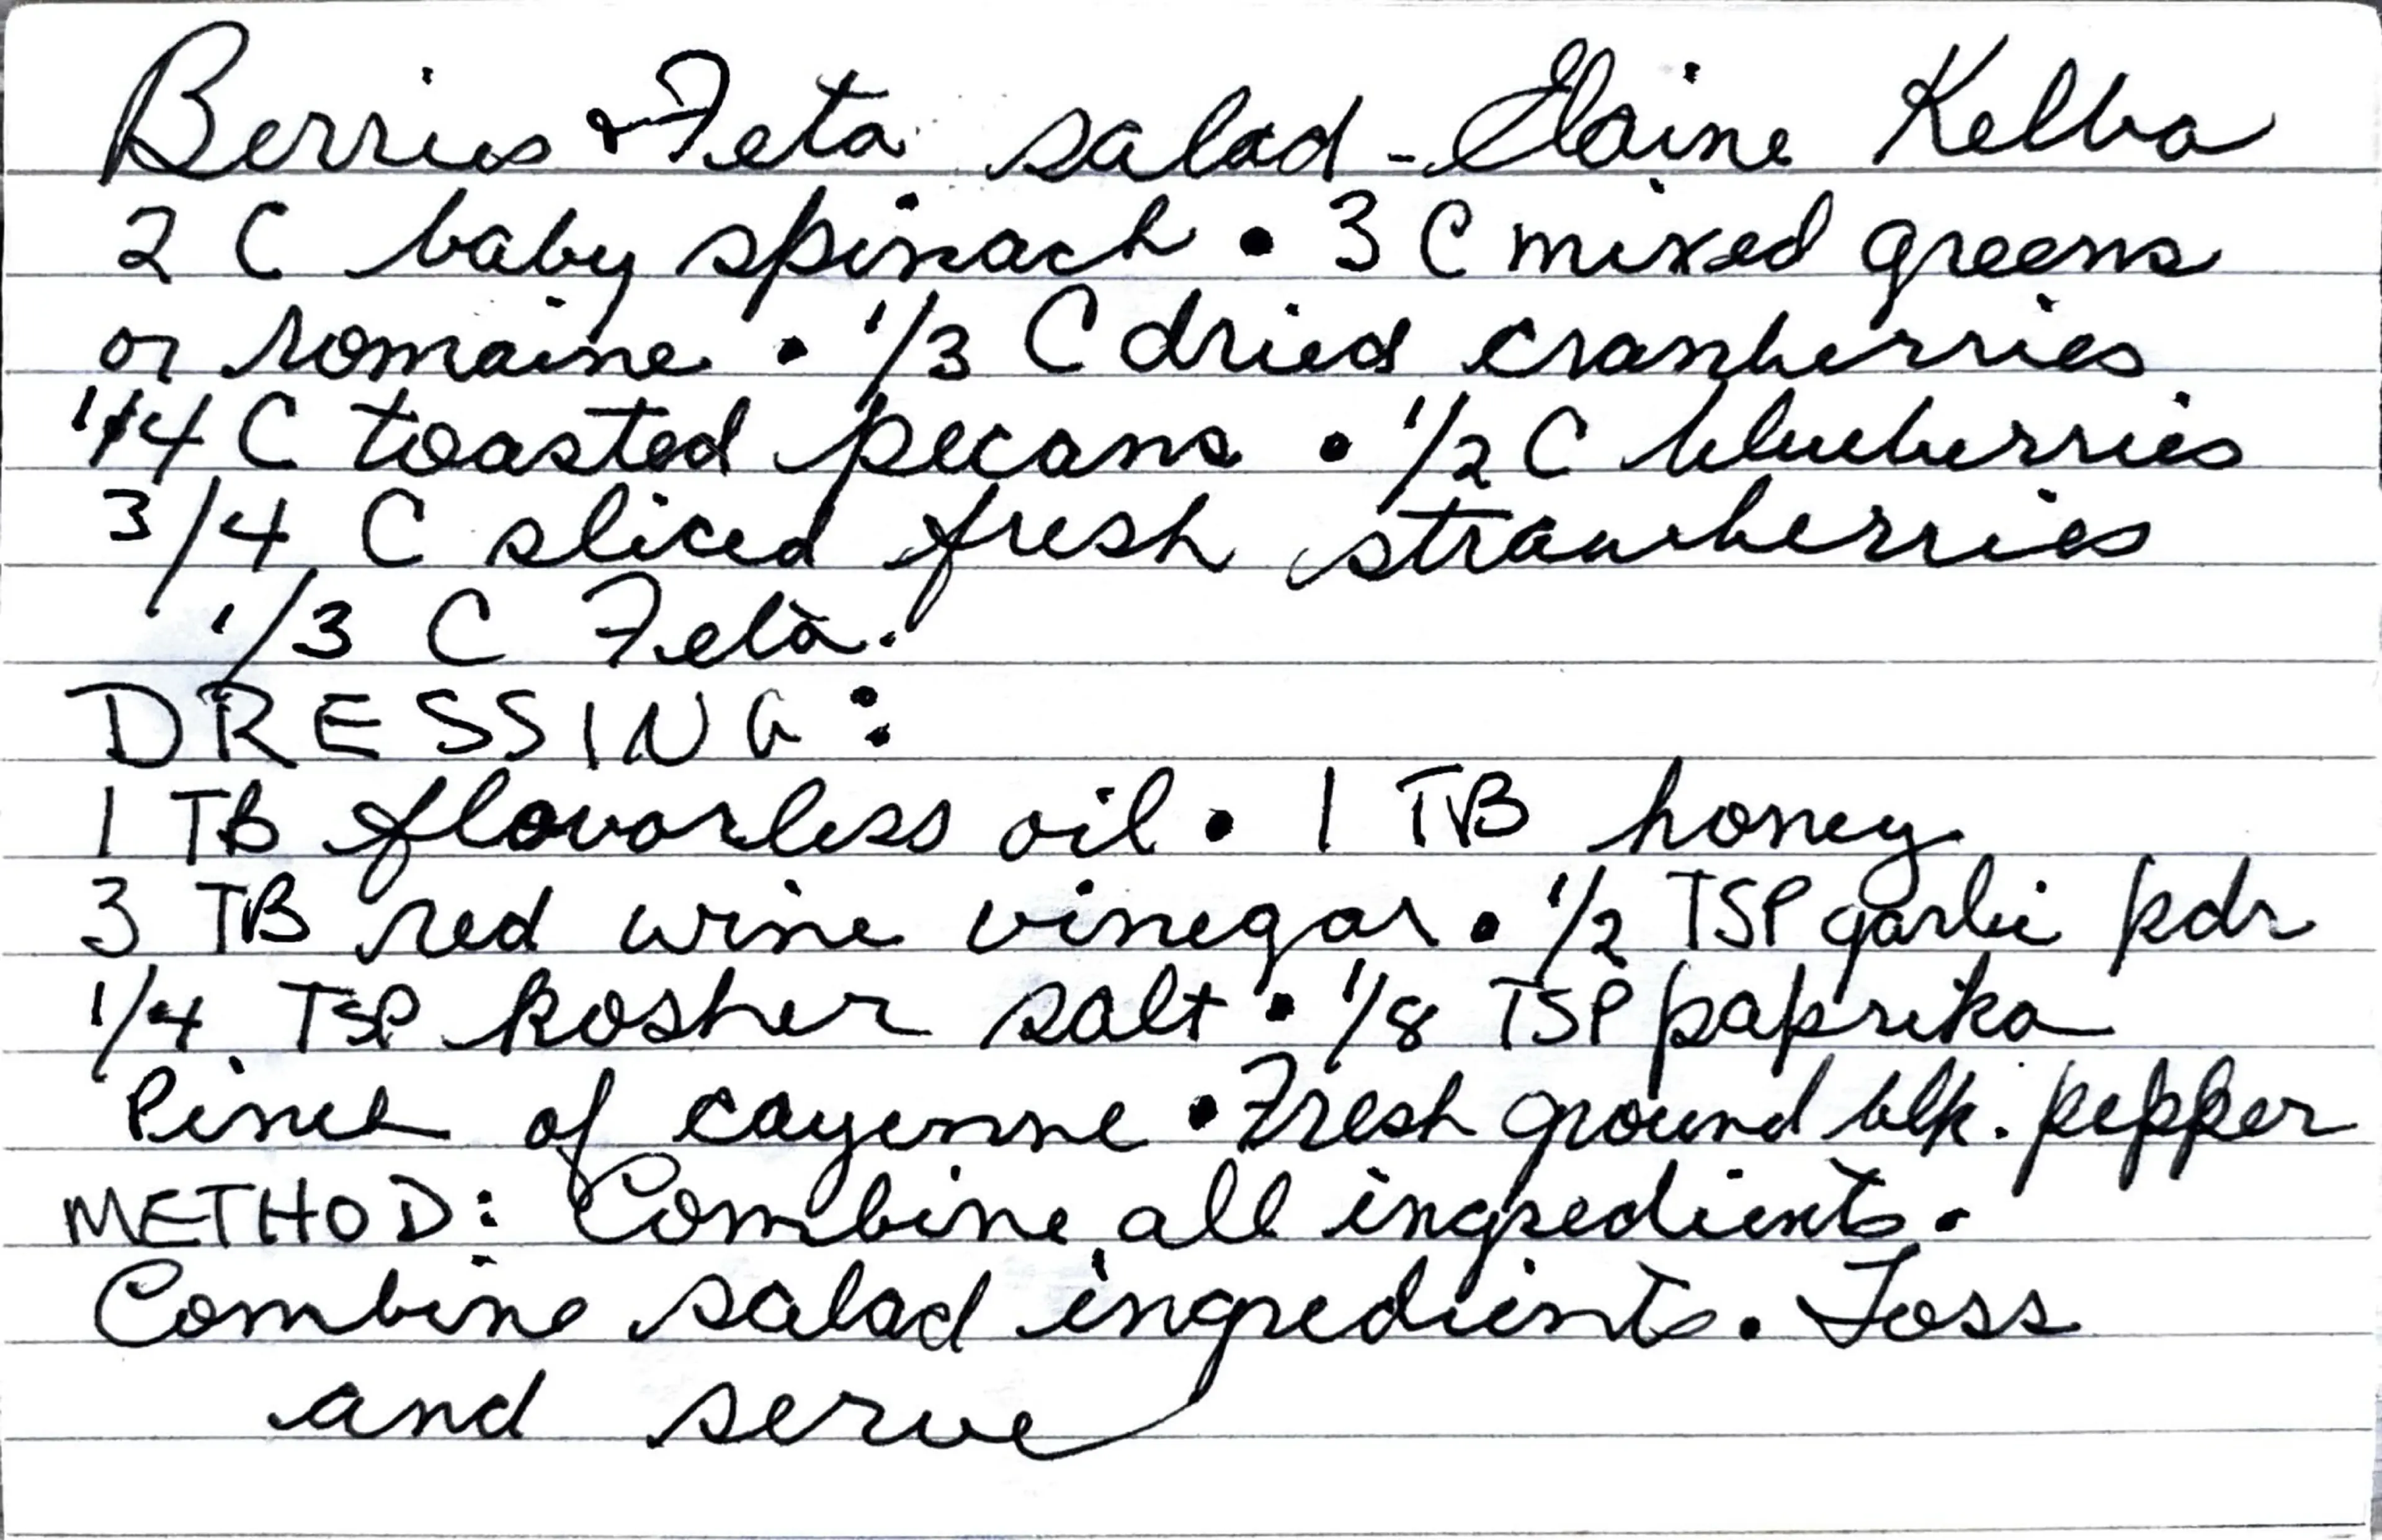 Berries & Feta salad - Elaine Kelba
2 C baby spinach • 3 C mixed greens
or romaine • 1/3 C dried cranberries
1/4 C toasted pecans • 1/2 C blueberries
3/4 C sliced fresh strawberries
1/3 C Feta.
DRESSING:
1 TB flavorless oil • 1 TB honey
3 TB red wine vinegar • 1/2 TSP garlic pdr
1/4 TSP kosher salt • 1/8 TSP paprika
Pinch of cayenne • Fresh ground blk. pepper
METHOD: Combine all ingredients.
Combine salad ingredients. Toss
and serve